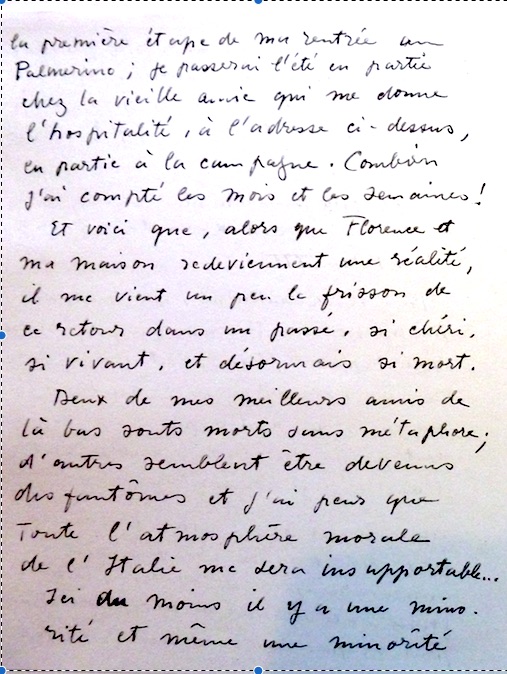 la première étape de ma rentrée au
Palmerino ; je passerai l'été en partie
chez la vieille amie qui me donne
l'hospitalité, à l'adresse ci-dessus,
en partie à la campagne. Combien
j'ai compté les mois et les semaines !
Et voici que, alors que Florence et
ma maison redeviennent une réalité,
il me vient un peu le frisson de
ce retour dans un passé, si chéri,
si vivant, et désormais si mort.
Deux de mes meilleurs amis de
là bas sonts morts sans métaphore ;
d'autres semblent être devenus
des fantômes et j'ai peur que
toute l'atmosphère morale
de l'Italie me sera insupportable...
Ici du moins il y a une mino-
rité et même une minorité